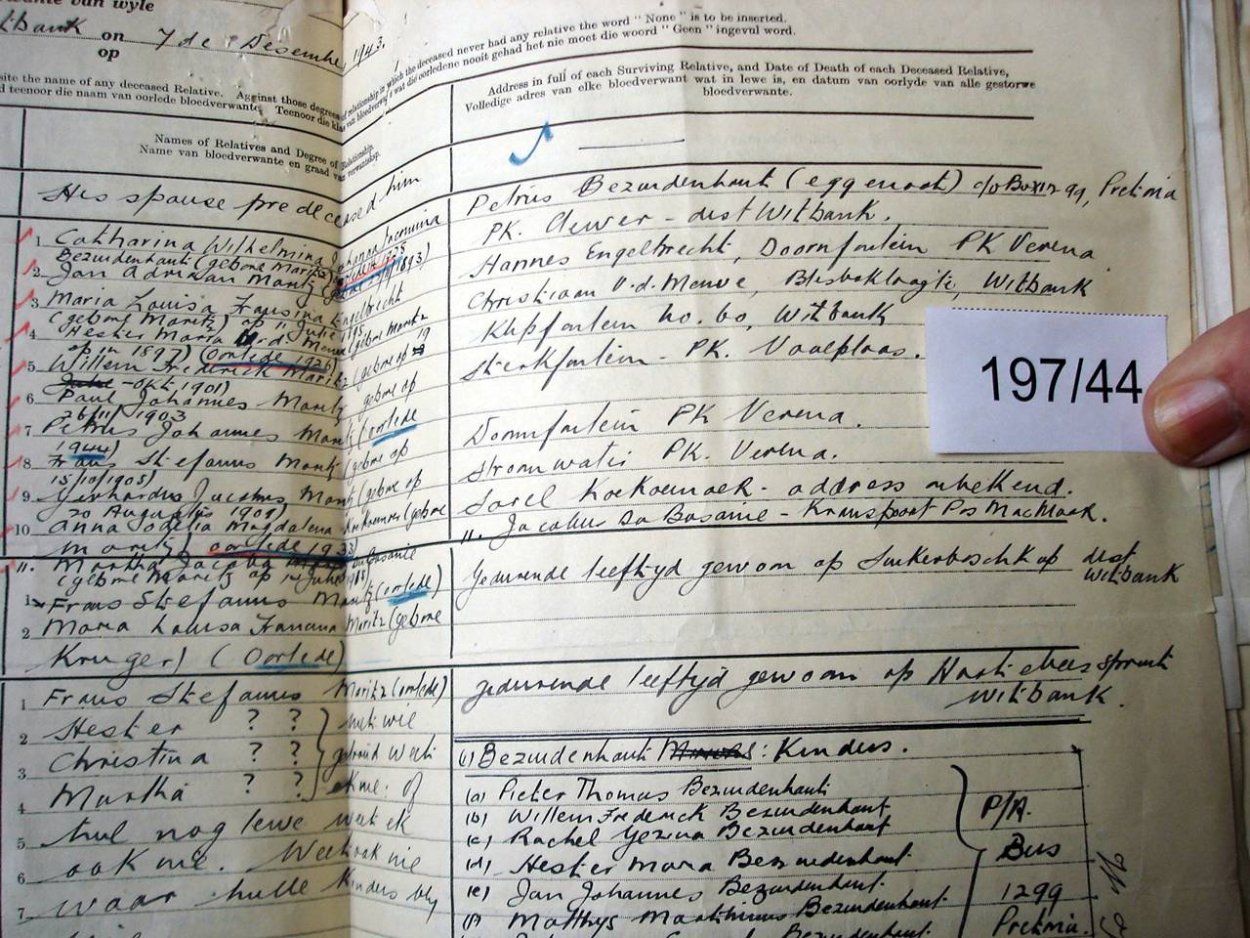 van wyle
on 7de Desember 1943.
op
relationship in which the deceased never had any relative the word "None" is to be inserted.
wat die oorledene nooit gehad het nie moet die woord "Geen" ingevul word.
site the name of any deceased Relative. Against those degrees
teenoor die naam van oorlede bloedverwante. Teenoor die
Address in full of each Surviving Relative, and Date of Death of each Deceased Relative,
Volledige adres van elke bloedverwant wat in lewe is, en datum van oorlyde van alle gestorwe
bloedverwante.
Names of Relatives and Degree of Relationship.
Name van bloedverwante en graad van verwantskap.
His spouse predeceased him
1 Catharina Wilhelmina Johanna Jacomina
Bezuidenhout (gebore Maritz) oorlede 1928
2. Jan Adriaan Maritz (gebore 1893)
3 Maria Louisa Fransina Engelbrecht
(gebore Maritz) op 11 Julie 1895
4 Hester Maria v d Merwe (gebore Maritz
op in 1897) (oorlede 1926)
5 Willem Frederick Maritz (gebore op 19
Okt 1901)
6 Paul Johannes Maritz gebore op
26/11/1903
7 Petrus Johannes Maritz (oorlede
1944)
8 Frans Stefanus Maritz (gebore op
15/10/1905)
9 Gerhardus Jacobus Maritz (gebore op
20 Augustus 1908)
10 Anna Sodelia Magdalena (gebore
Maritz) oorlede 1933)
11. Martha Jacoba
(gebore Maritz op
1 Frans Stefanus Maritz (oorlede)
2 Maria Louisa Maritz (gebore
Kruger) (Oorlede)
1 Frans Stefanus Maritz (oorlede)
2 Hester ? ? } met wie
3 Christina ? ? getroud weet
4 Martha ? ? ek nie. of
5 hul nog lewe weet ek
6 ook nie. Weet ook nie
7 waar hulle kinders bly
Petrus Bezuidenhout (eggenoot) c/o Box 1299, Pretoria
PK. Clewer - dist Witbank.
Hannes Engelbrecht, Doornfontein PK Verena
Christiaan v.d. Merwe, Blesboklaagte, Witbank
Klipfontein No. 60, Witbank
Sterkfontein - PK. Vaalplaas.
Doornfontein PK Verena.
Stroomwater PK. Verena.
Sarel Koekemoer - address onbekend.
11. Jacobus Kranspoort
gedurende leeftyd gewoon op Suikerboschkop dist
Witbank
gedurende leeftyd gewoon op Hartebeesspruit
Witbank.
(1) Bezuidenhout: Kinders.
(a) Pieter Thomas Bezuidenhout
(b) Willem Frederick Bezuidenhout
(c) Rachel Gezina Bezuidenhout
(d) Hester Maria Bezuidenhout
(e) Jan Johannes Bezuidenhout
(f) Matthys Marthinus Bezuidenhout
P/A.
Bus
1299
Pretoria.
197/44